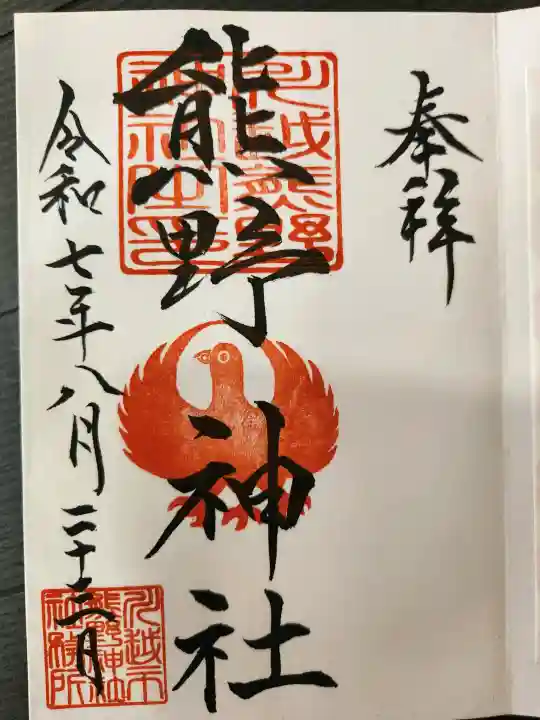 奉拝
川越熊野
熊野神社
令和七年八月二十三日
川越市
熊野神
社務所